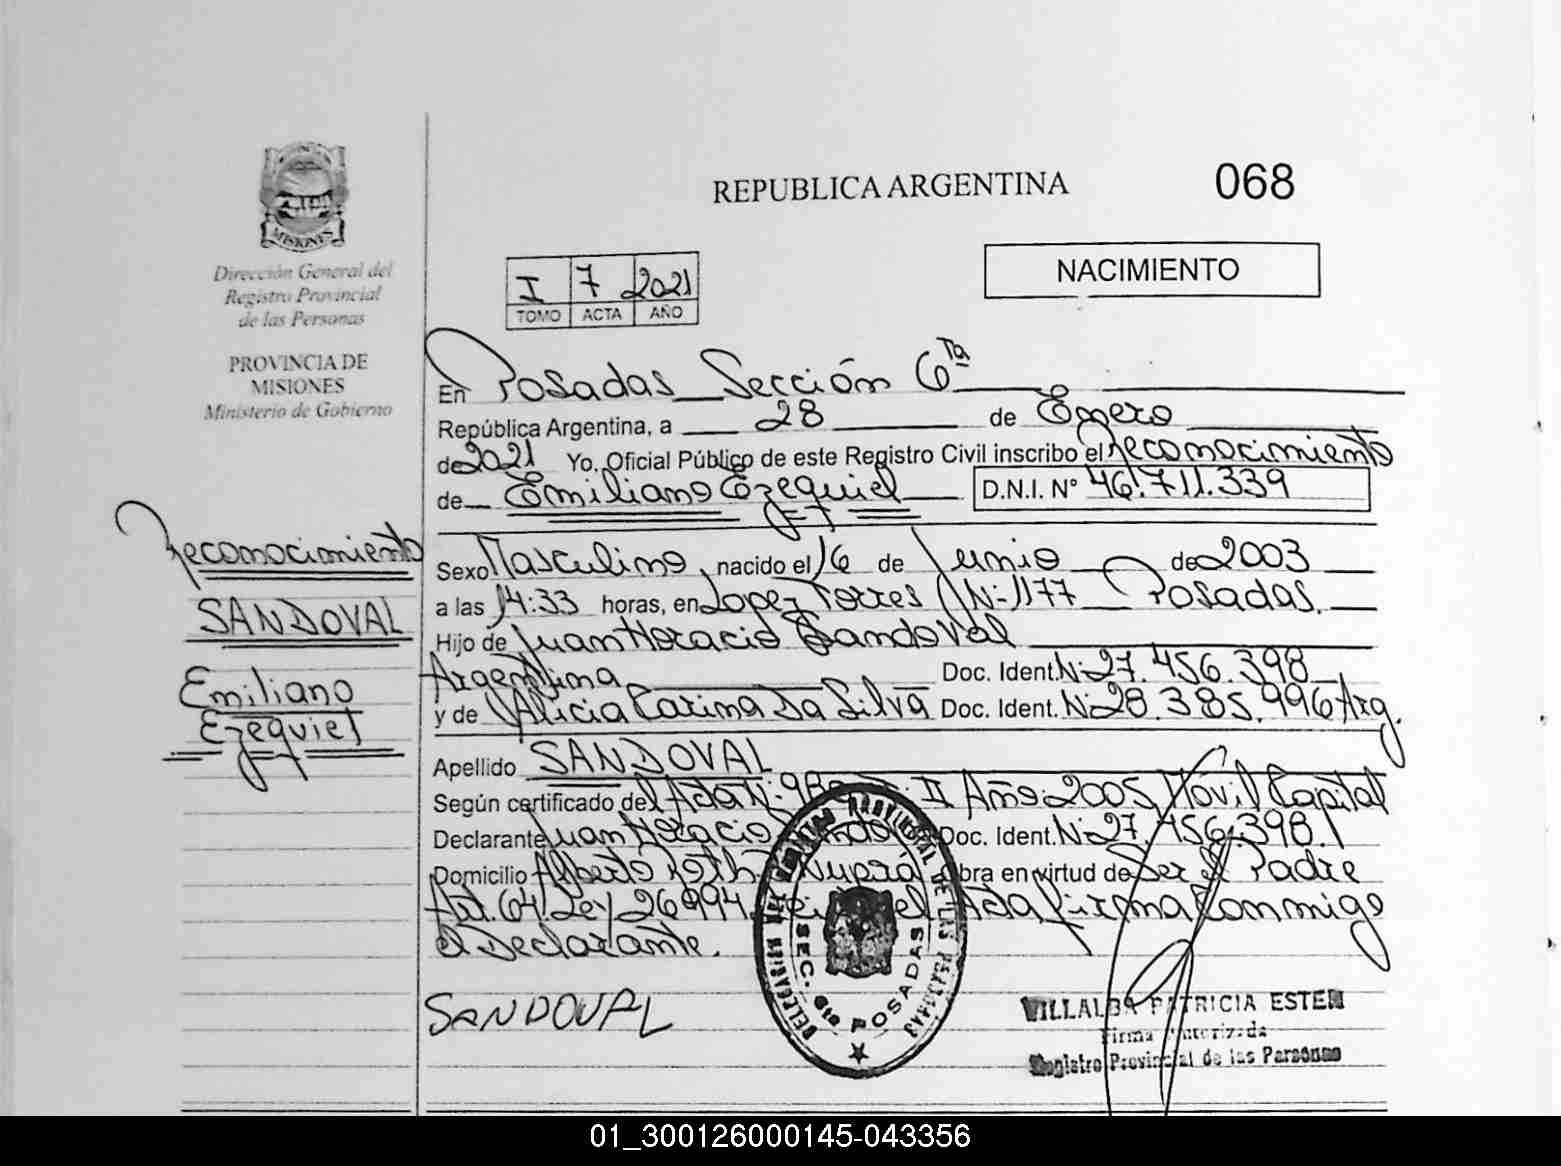 REPUBLICA ARGENTINA
068
MISIONES
Dirección General del
Registro Provincial
de las Personas
PROVINCIA DE
MISIONES
Ministerio de Gobierno
I 7 2021
TOMO ACTA AÑO
NACIMIENTO
En Posadas Sección 6ta
República Argentina, a 28 de Enero
de 2021 Yo, Oficial Público de este Registro Civil inscribo el Reconocimiento
de Emiliano Ezequiel D.N.I. N° 46.711.339
Reconocimiento
SANDOVAL
Emiliano
Ezequiel
Sexo Masculino nacido el 16 de Junio de 2003
a las 14:33 horas, en Lopez Torres N: 1177 Posadas.
Hijo de Juan Horacio Sandoval
Argentina Doc. Ident. N: 27.456.398
y de Alicia Carina Da Silva Doc. Ident. N: 28.385.996 Arg.
Apellido SANDOVAL
Según certificado del Acta N: II Año: 2005 Móvil Capital
Declarante Juan Horacio Doc. Ident. N: 27.456.398
Domicilio Alberto Roth obra en virtud de Ser el Padre
Art. 64 Ley 26994 el Acta firma Conmigo
el Declarante.
SANDOVAL
DELEGACION DEL REGISTRO PROVINCIAL DE LAS PERSONAS
SEC. 6ta POSADAS
VILLALBA PATRICIA ESTER
Firma Autorizada
Registro Provincial de las Personas
01_300126000145-043356